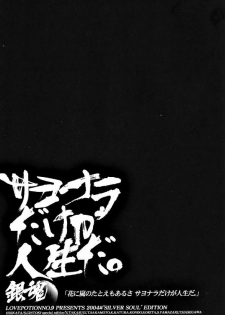 サヨーナラ
だけが
人生だ。
銀魂
「花に嵐のたとえもあるさ サヨナラだけが人生だ。」
LOVEPOTIONNO.9 PRESENTS 2004@"SILVER SOUL" EDITION